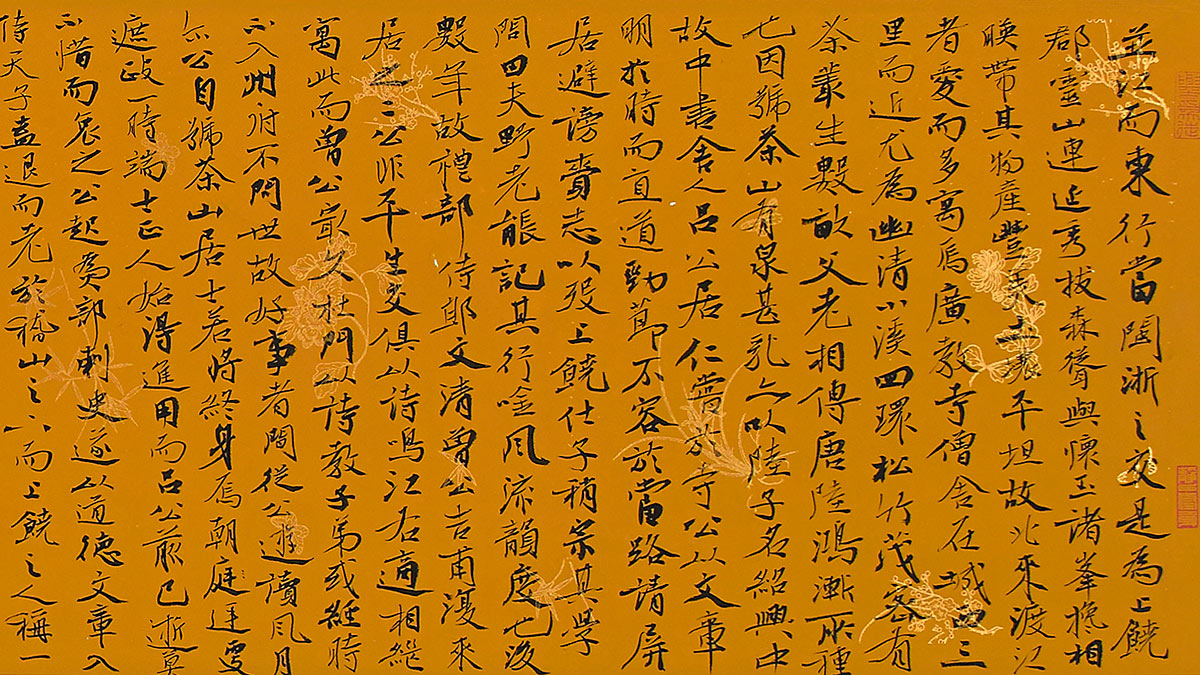 並江而東行當閩浙之交是為上饒
郡靈山連延秀拔森聳與懷玉諸峯挽相
暎帶其物產豐美土壤平坦故北來渡江
者愛而多寓焉廣教寺僧舍在城西三
里而近尤為幽清小溪四環松竹茂密有
茶叢生數畝父老相傳唐陸鴻漸所種
也因號茶山有泉甚乳亦以陸子名紹興中
故中書舍人呂公居仁嘗於寺公以文章
明於時而直道勁節不容於當路請屏
居避謗賫志以歿上饒仕子稍宗其學
問四夫野老能記其行唫風流韻度也後
數年故禮部侍郎文清曾公吉甫復來
居之二公平生交俱以詩鳴江右適相繼
寓此而曾公寂久杜門以詩教子弟或經時
不入州府不問世故好事者間從公遊讀風月
亦公自號茶山居士若將終身焉朝廷
遮一時端士正人始得進用而呂公前已逝
不惜而哀之公起為部刺史遂以道德文章入
侍天子蓋退而老於稽山之下而上饒之人稱一